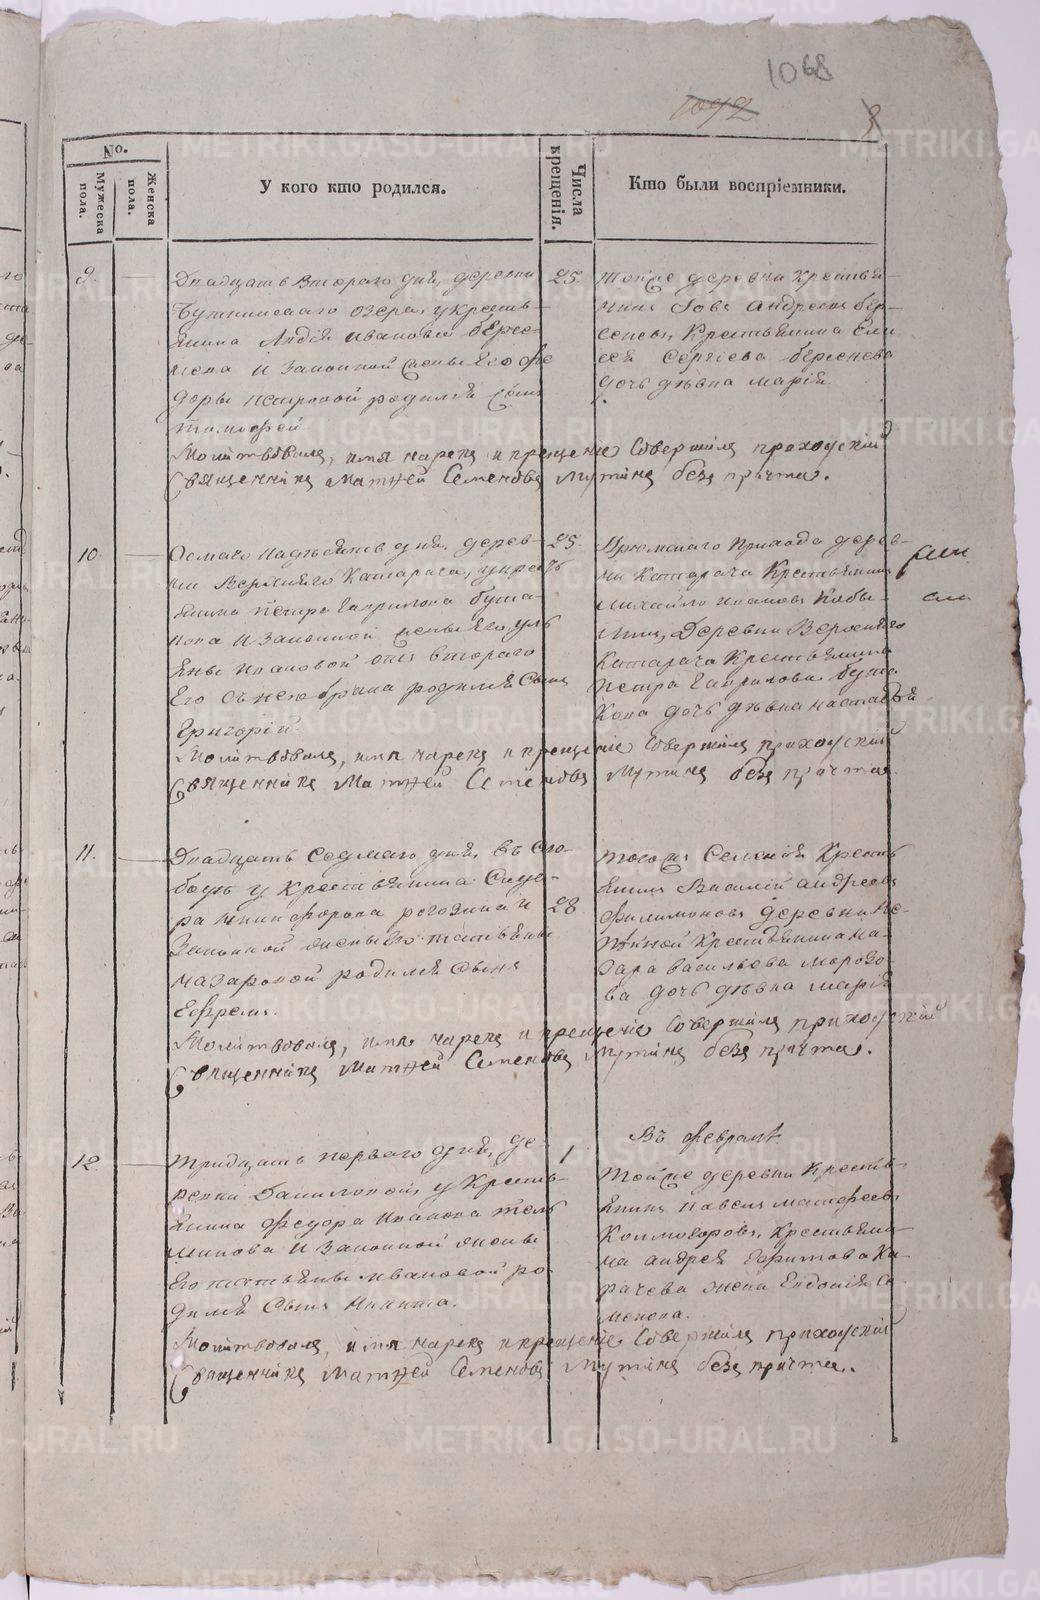 1068
1092
No.
Мужеска пола.
Женска пола.
У кого кто родился.
Числа крещенія.
Кто были воспріемники.
9.
Двадцать втораго дня, деревни
озера, у кресть-
янина Ивановa Берес-
нева и законной жены его Фе
доры Петровой родился сынъ
Тимофей
25.
Тойже деревни крестья-
нинъ Андреевъ Бер-
сеневъ, крестьянина Ели
сея Сергіева Береснева
дочь дѣвка Марія
Молитвовалъ, имя нарекъ и крещеніе совершилъ приходскій
Священникъ Матѳей Семеновъ Мутинъ безъ причта.
10.
Осмаго надесять дня, дерев-
ни Верхняго Катарача, у кресть
янина Петра Гаврилова Бута-
кова и законной жены его Уль
яны Ивановой отъ втораго
его брака родился сынъ
Григорій.
25.
прихода дерев-
ни Катарача крестьянинъ
Михайло Ивановъ Кобы-
деревни Верхняго
Катарача крестьянина
Петра Гаврилова Бута
кова дочь дѣвка Настасья
Молитвовалъ, имя нарекъ и крещеніе совершилъ приходскій
Священникъ Матѳей Семеновъ Мутинъ безъ причта.
11.
Двадцать седмаго дня, въ сло-
бодѣ у крестьянина Сидо-
ра Никифорова Рогозина и
законной жены его Татьяны
Назаровой родился сынъ
Ефремъ.
28
Тогожъ селенія кресть
янинъ Василій Андреевъ
Филимоновъ деревни
крестьянина На-
зара Васильева Морозо-
ва дочь дѣвка Марія
Молитвовалъ, имя нарекъ и крещеніе совершилъ приходскій
Священникъ Матѳей Семеновъ Мутинъ безъ причта.
12
Тридцать перваго дня, де-
ревни Вавиловой, у кресть-
янина Федора Иванова
и законной жены
его Татьяны Ивановой ро-
дился сынъ Никита.
Въ Февралѣ
1
Тойже деревни кресть-
янинъ Павелъ Матфеевъ
Колмогоровъ, крестьяни-
на Андрея Ка-
рачева жена Евдокія Се
менова.
Молитвовалъ, имя нарекъ и крещеніе совершилъ приходскій
Священникъ Матѳей Семеновъ Мутинъ безъ причта.
METRIKI.GASO-URAL.RU